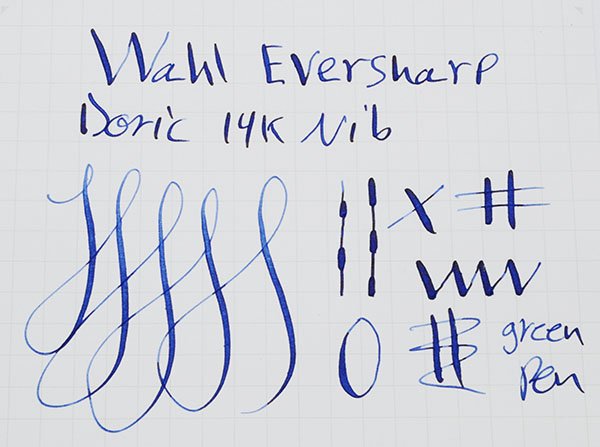 Wahl Eversharp
Doric 14K Nib
green
Pen